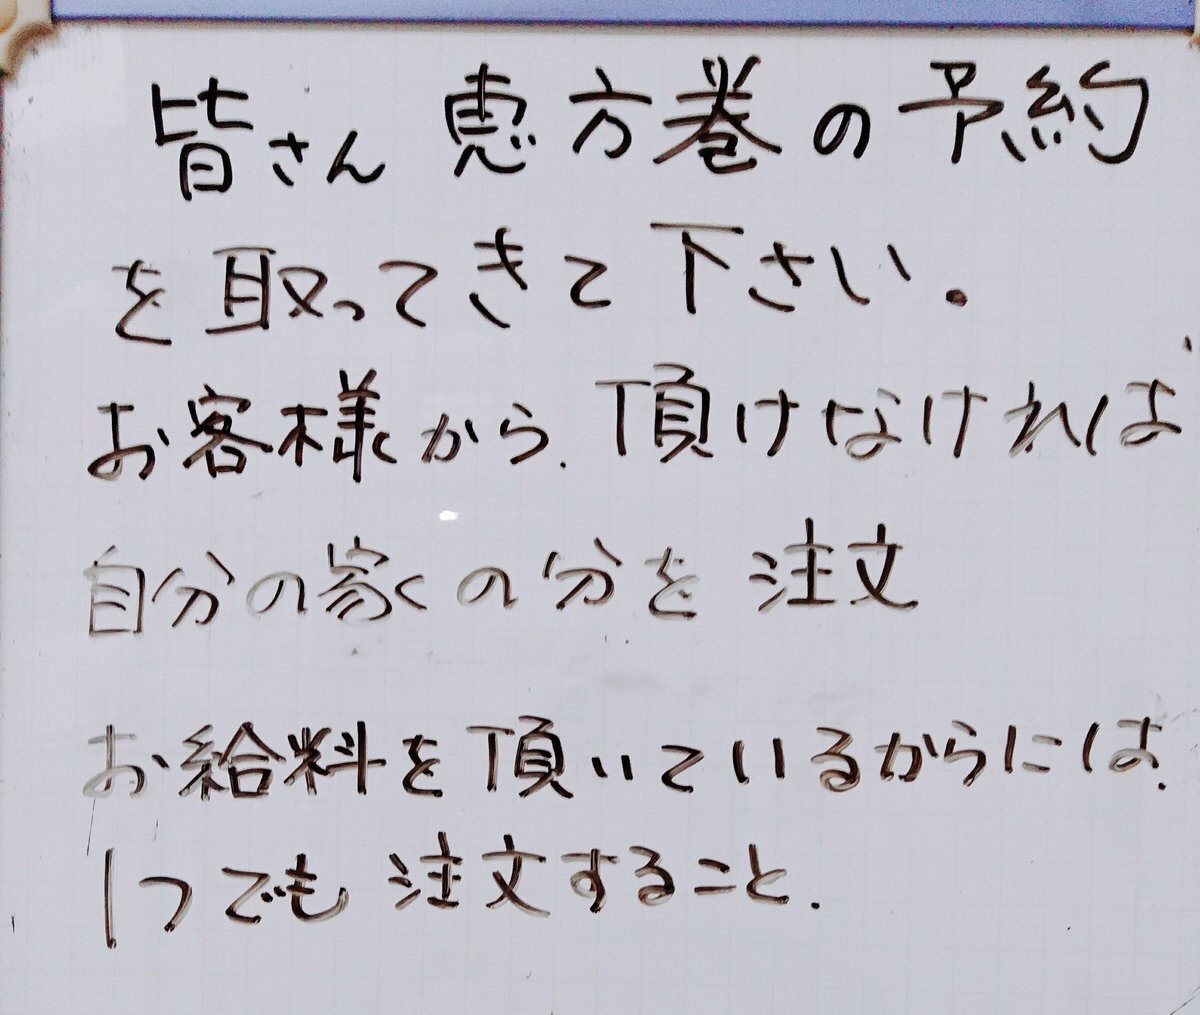 皆さん 恵方巻の予約
を取ってきて下さい。
お客様から、頂けなければ
自分の家の分を 注文
お給料を頂いているからには、
1つでも 注文すること。